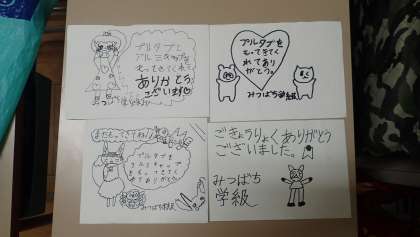 プルタブと
アルミキャップを
もってきてくれて
ありがとう
ございます
プルタブを
もってきてく
れてありが
とう。
みつばち学級
またもってきてね!
プルタブを
もってきてく
れて
ありがとう
みつばち学級
ごきょうりょくありがとう
ございました。
みつばち
学級